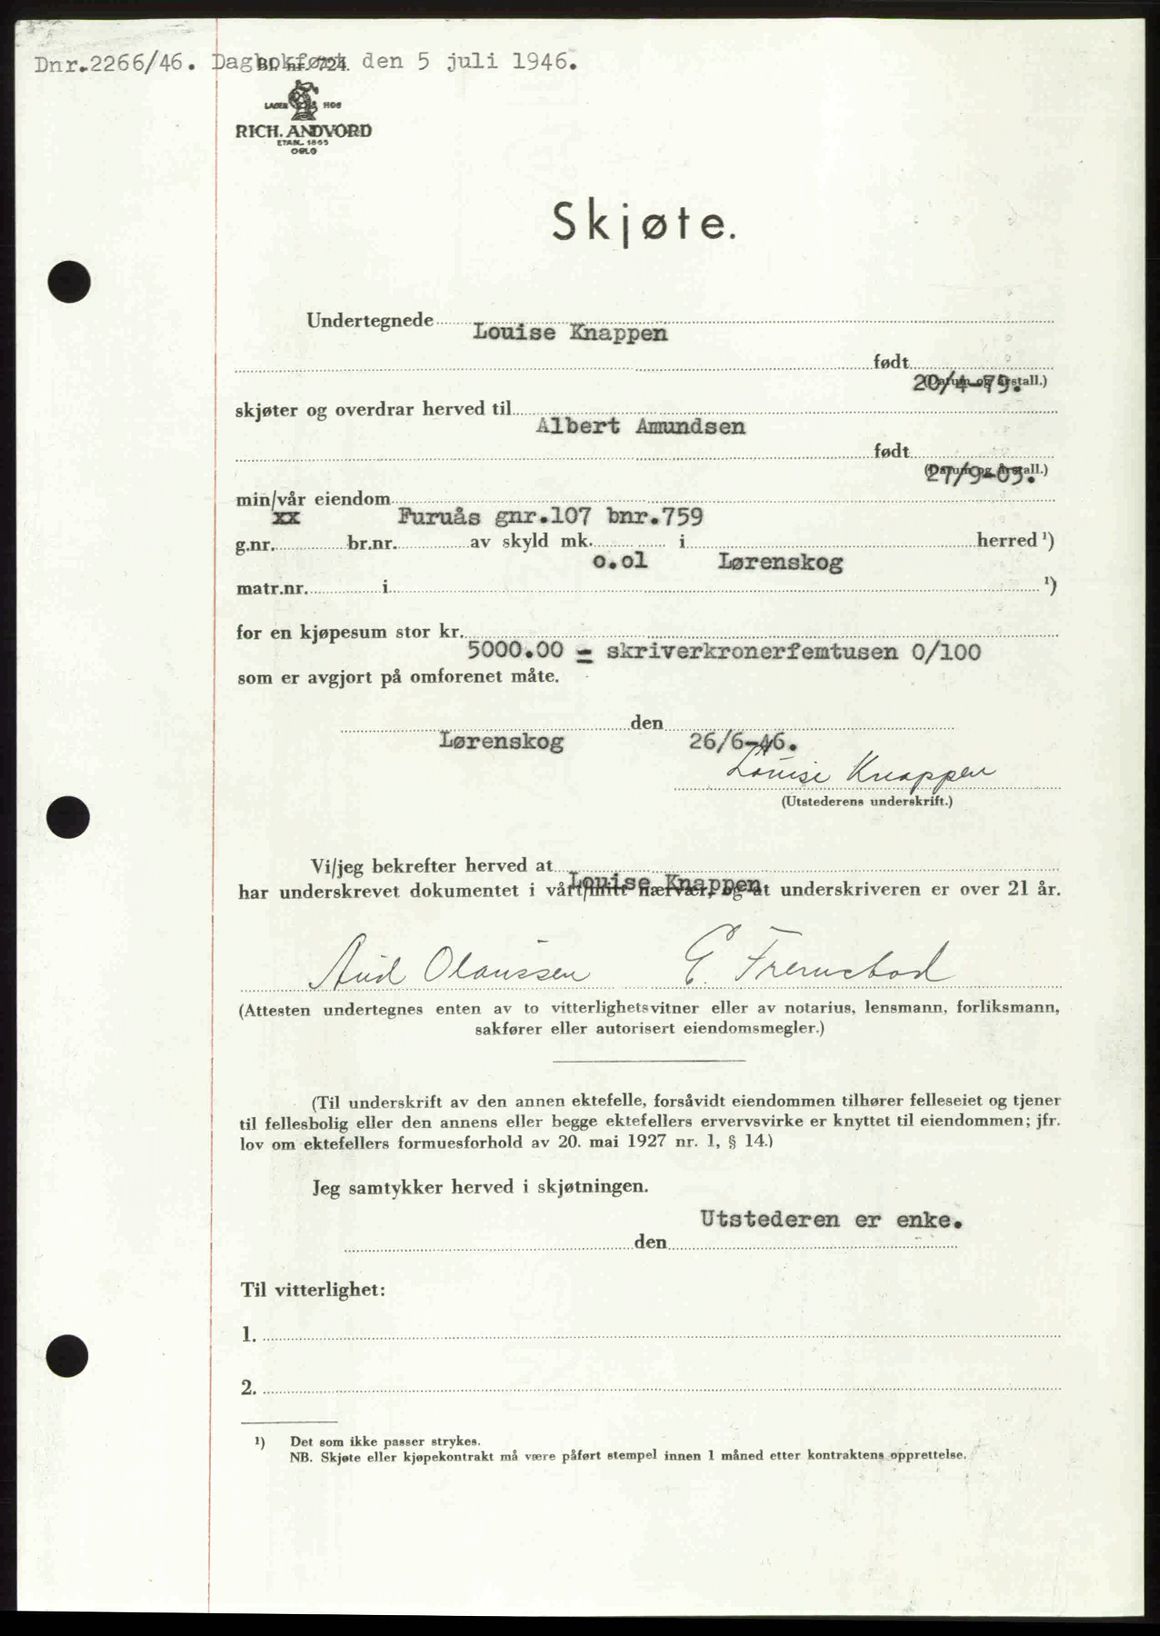 Dnr.2266/46. Dagbokført den 5 juli 1946.
Bl. nr. 724.
LAGER HOS
RICH. ANDVORD
ETABL. 1865
OSLO
Skjøte.
Undertegnede Louise Knappen
født 20/4-79.
(Datum og årstall.)
skjøter og overdrar herved til Albert Amundsen
født 27/9-05.
(Datum og årstall.)
min/vår eiendom
xx Furuås gnr.107 bnr.759
g.nr. br.nr. av skyld mk. o.ol i Lørenskog herred ¹)
matr.nr. i ¹)
for en kjøpesum stor kr. 5000.00 = skriverkronerfemtusen 0/100
som er avgjort på omforenet måte.
Lørenskog den 26/6-46.
Louise Knappen
(Utstederens underskrift.)
Vi/jeg bekrefter herved at Louise Knappen
har underskrevet dokumentet i vårt/mitt nærvær, og at underskriveren er over 21 år.
Aud Olaussen E. Fremstad
(Attesten undertegnes enten av to vitterlighetsvitner eller av notarius, lensmann, forliksmann,
sakfører eller autorisert eiendomsmegler.)
(Til underskrift av den annen ektefelle, forsåvidt eiendommen tilhører felleseiet og tjener
til fellesbolig eller den annens eller begge ektefellers ervervsvirke er knyttet til eiendommen; jfr.
lov om ektefellers formuesforhold av 20. mai 1927 nr. 1, § 14.)
Jeg samtykker herved i skjøtningen.
Utstederen er enke.
den
Til vitterlighet:
1.
2.
¹) Det som ikke passer strykes.
NB. Skjøte eller kjøpekontrakt må være påført stempel innen 1 måned etter kontraktens opprettelse.